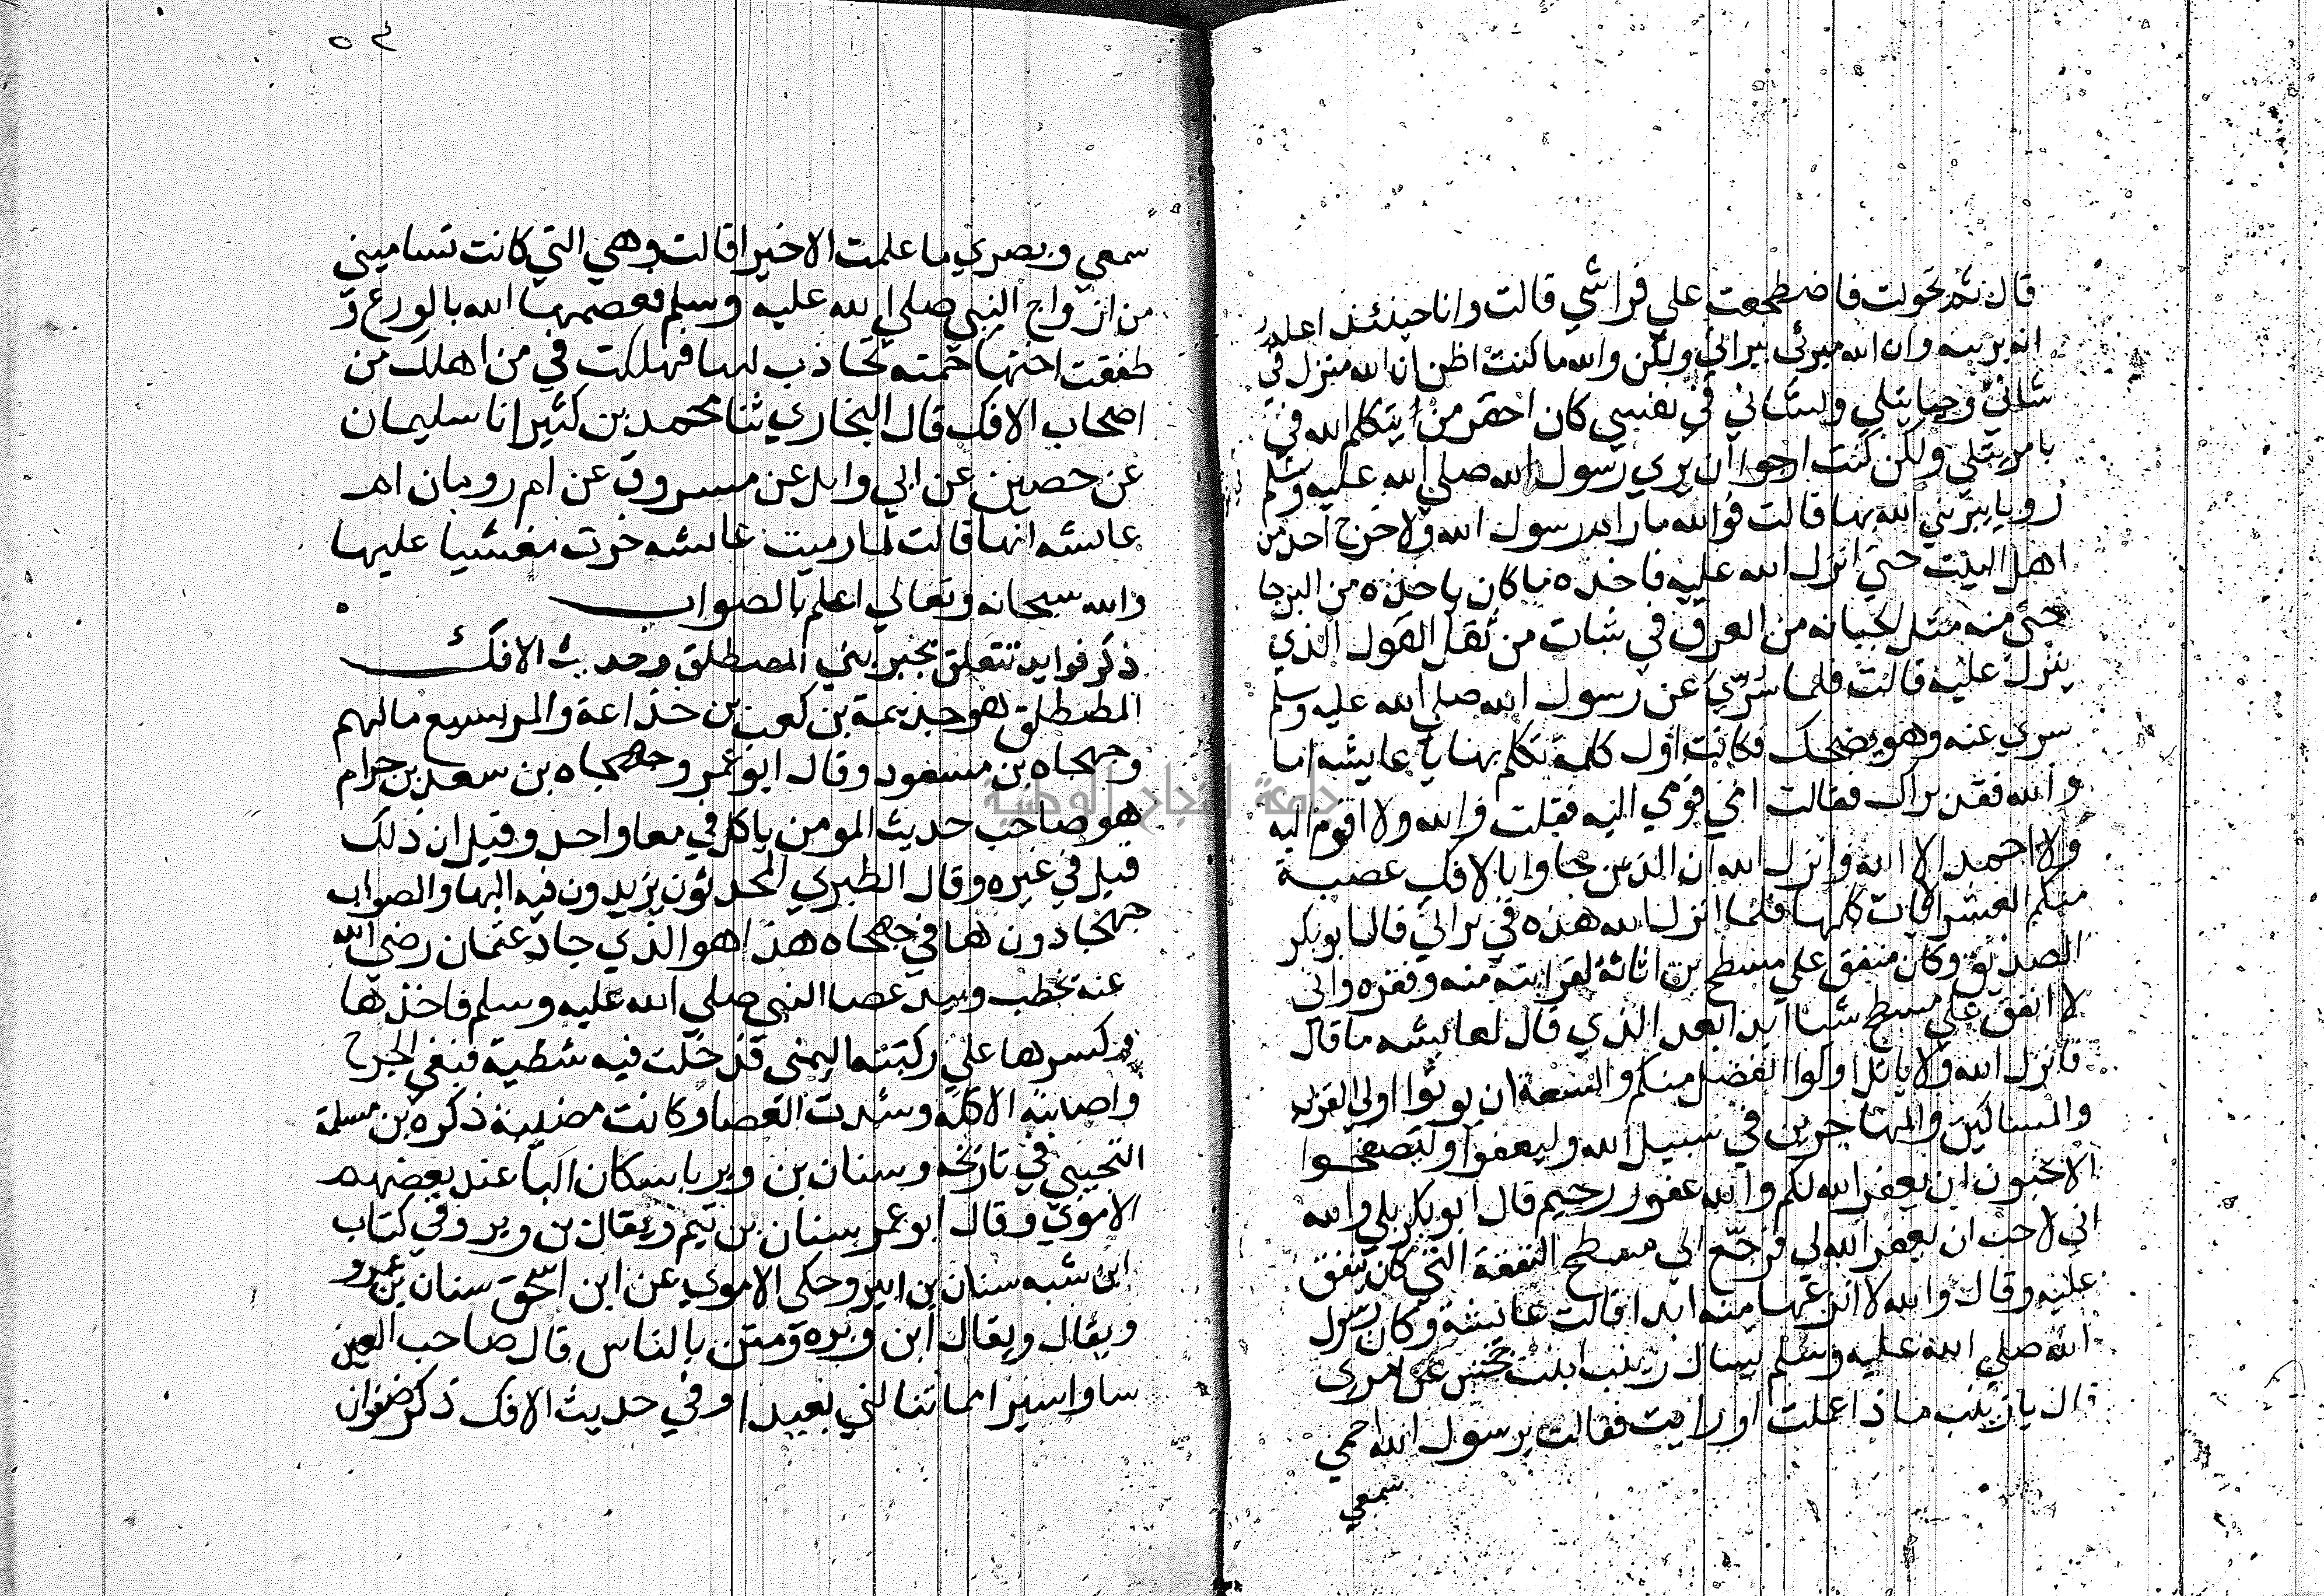 قال ثم تحولت فاضطجعت علي فراشي قالت وانا حينئذ اعلم
انه بريه وان الله مبرئي ببراتي ولكن والله ما كنت اظن ان الله منزل في
شاني وحيا يتلي ولشاني في نفسي كان احقر من ان يتكلم الله في
بامر يتلي ولكن كنت ارجوا ان يري رسول الله صلي الله عليه وسلم
رويا يبرئني الله بها قالت فوالله ما رام رسول الله ولا خرج احد من
اهل البيت حتي انزل الله عليه فاخذه ما كان ياخذه من البرحا
حتي منه مثل الجمانه من العرق في شات من ثقل القول الذي
ينزل عليه قالت فلما سري عن رسول الله صلي الله عليه وسلم
سري عنه وهو يضحك فكانت اول كلمة تكلم بها يا عايشه اما
والله فقد براك فقالت امي قومي اليه فقلت والله ولا اقوم اليه
ولا احمد الا الله وانزل الله ان الذين جاوا بالافك عصبة
منكم العشر الايات كلها فلما انزل الله هذه في براتي قال ابو بكر
الصديق وكان منفق علي مسطح بن اثاثة لقرابته منه وفقره واني
لا انفق علي مسطح شيا ابدا بعد الذي قال لعايشه ما قال
فانزل الله ولا ياتل اولوا الفضل منكم والسعة ان يوتوا اولي القربي
والمساكين والمهاجرين في سبيل الله وليعفوا وليصفحوا
الا تحبون ان يغفر الله لكم والله غفور رحيم قال ابو بكر بلي والله
اني لاحب ان يغفر الله لي فرجع الي مسطح النفقة التي كان ينفق
عليه وقال والله لا انزعها منه ابدا قالت عايشة وكان رسول
الله صلي الله عليه وسلم يسال زينب ابنت جحش عن امري
قال يا زينب ماذا علمت او رايت فقالت يرسول الله احمي
سمعي
٥٤
سمعي وبصري ما علمت الا خيرا قالت وهي التي كانت تساميني
من ازواج النبي صلي الله عليه وسلم فعصمها الله بالورع و
طفقت اختها حمنه تحاذب لها فهلكت في من اهلك من
اصحاب الافك قال البخاري ثنا محمد بن كثير انا سليمان
عن حصين عن ابي وايل عن مسروق عن ام رومان ام
عايشه انها قالت لما رميت عايشه خرت مغشيا عليها
والله سبحانه وتعالي اعلم بالصواب
ذكر فوايد تتعلق بخبر بني المصطلق وحديث الافك
المصطلق هو جذيمة بن كعب بن خذاعة والمريسيع ما لهم
وجهجاه بن مسعود وقال ابو عمر وجهجاه بن سعد بن حرام
هو صاحب حديث المومن ياكل في معا واحد وقيل ان ذلك
قيل في غيره وقال الطبري المحدثون يزيدون فيه الها والصواب
جهجا دون ها في جهجاه هذا هو الذي جاد عثمان رضي الله
عنه يخطب وبيده عصا النبي صلي الله عليه وسلم فاخذها
وكسرها علي ركبته اليمني فدخلت فيه شظية فبقي الجرح
واصابته الاكلة وشدت العصا وكانت مضببة ذكره بن مسلمة
التجيبي في تاريخه وسنان بن وبر باسكان البا عند بعضهم
الاموي وقال ابو عمر سنان بن تيم ويقال بن وبر وفي كتاب
ابن شبه سنان بن ابير وحكي الاموي عن ابن اسحق سنان بن عمرو
ويقال ويقال ابن وبره ومتن بالناس قال صاحب العين
ساوا سيرا مماتنا لني بعيدا وفي حديث الافك ذكر صفوان
جامعة النجاح الوطنية